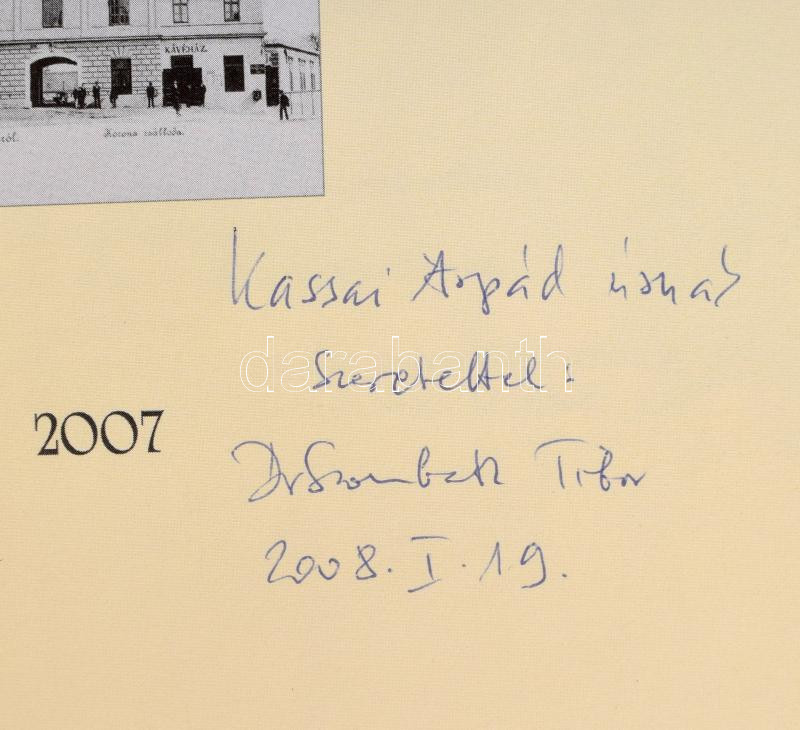 KÁVÉHÁZ
Korona szálloda.
Kassai Árpád úrnak
szeretettel:
darabanth
2007
Dr Szombath Tibor
2008. I. 19.